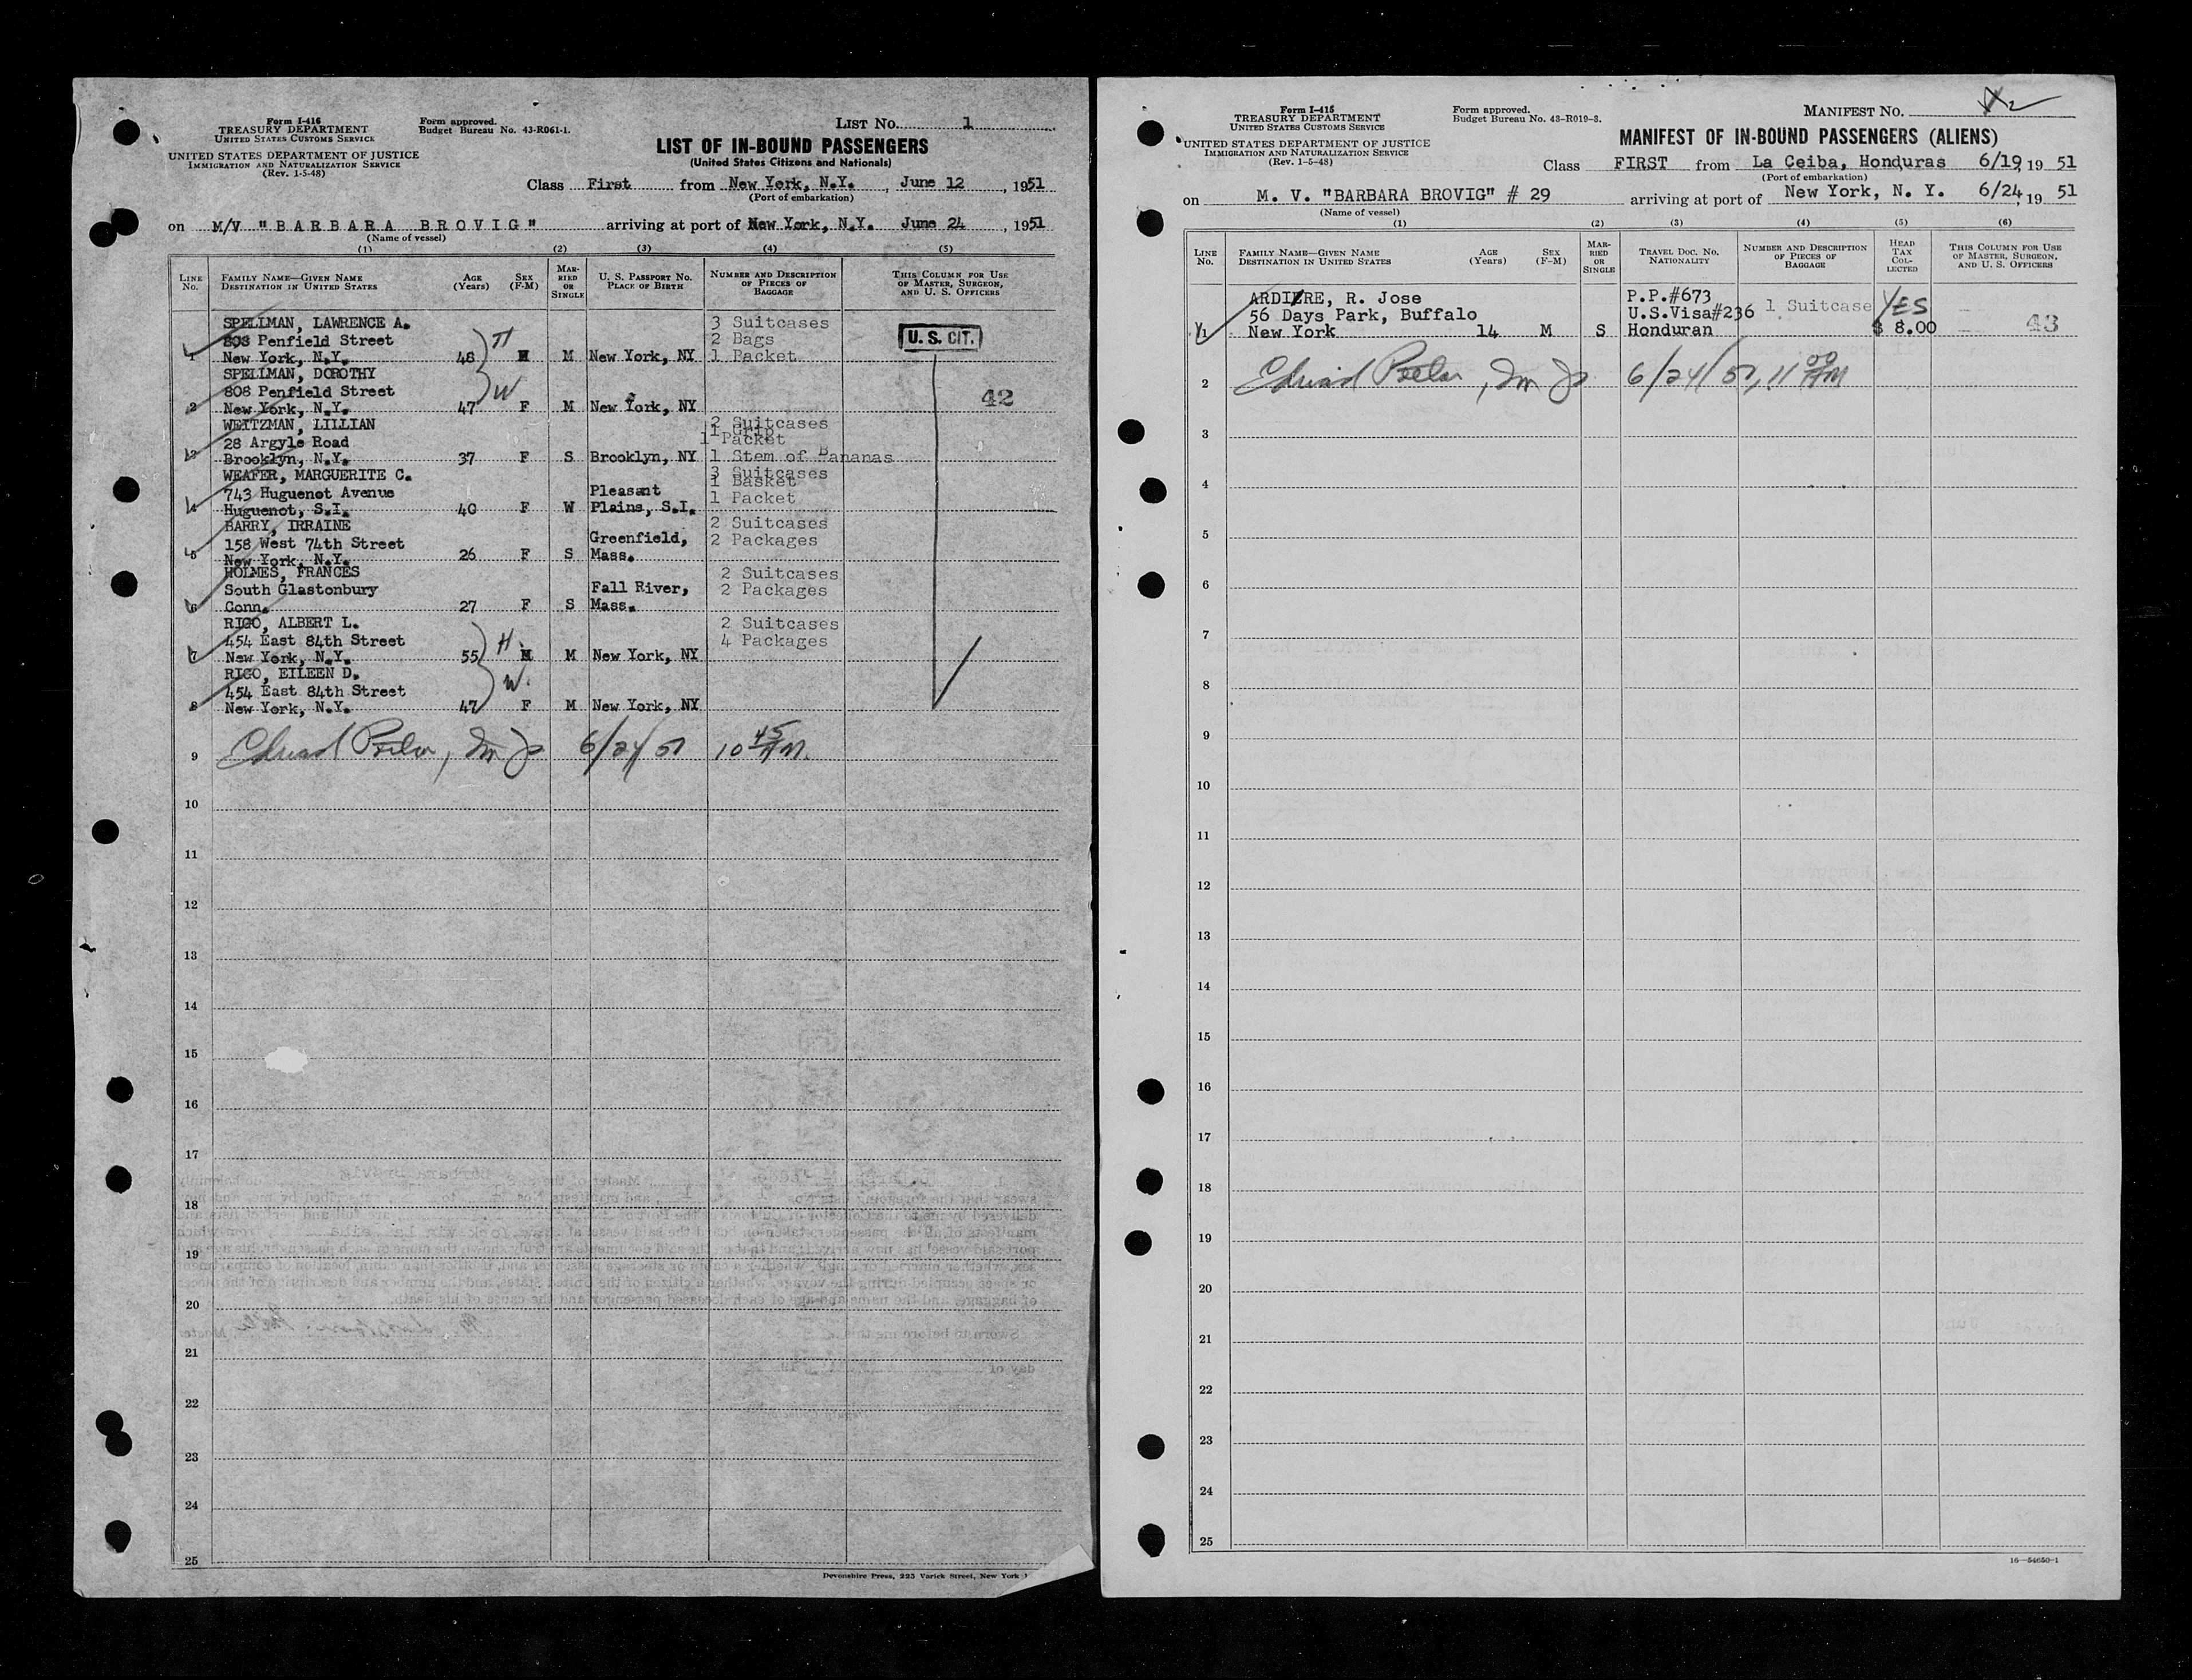 Form I-416
TREASURY DEPARTMENT
UNITED STATES CUSTOMS SERVICE
UNITED STATES DEPARTMENT OF JUSTICE
IMMIGRATION AND NATURALIZATION SERVICE
(Rev. 1-5-48)
Form approved.
Budget Bureau No. 43-R061-1.
LIST NO. 1
LIST OF IN-BOUND PASSENGERS
(United States Citizens and Nationals)
Class First from New York, N.Y., June 12, 1951
(Port of embarkation)
on M/V "BARBARA BROVIG" arriving at port of New York, N.Y. June 24, 1951
(Name of vessel)
(1) (2) (3) (4) (5)
LINE No. FAMILY NAME—GIVEN NAME DESTINATION IN UNITED STATES AGE (Years) SEX (F-M) MARRIED OR SINGLE U. S. PASSPORT NO. PLACE OF BIRTH NUMBER AND DESCRIPTION OF PIECES OF BAGGAGE THIS COLUMN FOR USE OF MASTER, SURGEON, AND U. S. OFFICERS
SPELLMAN, LAWRENCE A. 3 Suitcases
808 Penfield Street H 2 Bags U. S. CIT.
1 New York, N.Y. 48 M M New York, NY 1 Packet
SPELLMAN, DOROTHY
808 Penfield Street W
2 New York, N.Y. 47 F M New York, NY 42
WEITZMAN, LILLIAN 2 Suitcases
1 Grip
28 Argyle Road 1 Packet
3 Brooklyn, N.Y. 37 F S Brooklyn, NY 1 Stem of Bananas
WEAFER, MARGUERITE C. 3 Suitcases
1 Basket
743 Huguenot Avenue Pleasant 1 Packet
4 Huguenot, S.I. 40 F W Plains, S.I.
BARRY, IRRAINE 2 Suitcases
158 West 74th Street Greenfield, 2 Packages
5 New York, N.Y. 26 F S Mass.
HOLMES, FRANCES 2 Suitcases
South Glastonbury Fall River, 2 Packages
6 Conn. 27 F S Mass.
RIGO, ALBERT L. 2 Suitcases
454 East 84th Street H. 4 Packages
7 New York, N.Y. 55 M M New York, NY
RIGO, EILEEN D.
454 East 84th Street W.
8 New York, N.Y. 47 F M New York, NY
9 6/24/51 10 45 AM.
10
11
12
13
14
15
16
17
18
19
20
21
22
23
24
25
Devonshire Press, 225 Varick Street, New York
Form I-415
TREASURY DEPARTMENT
UNITED STATES CUSTOMS SERVICE
UNITED STATES DEPARTMENT OF JUSTICE
IMMIGRATION AND NATURALIZATION SERVICE
(Rev. 1-5-48)
Form approved.
Budget Bureau No. 43-R019-3.
MANIFEST NO. 2
MANIFEST OF IN-BOUND PASSENGERS (ALIENS)
Class FIRST from La Ceiba, Honduras 6/19, 1951
(Port of embarkation)
on M. V. "BARBARA BROVIG" # 29 arriving at port of New York, N. Y. 6/24, 1951
(Name of vessel)
(1) (2) (3) (4) (5) (6)
LINE No. FAMILY NAME—GIVEN NAME DESTINATION IN UNITED STATES AGE (Years) SEX (F-M) MARRIED OR SINGLE TRAVEL DOC. NO. NATIONALITY NUMBER AND DESCRIPTION OF PIECES OF BAGGAGE HEAD TAX COLLECTED THIS COLUMN FOR USE OF MASTER, SURGEON, AND U. S. OFFICERS
R. Jose P.P.#673
56 Days Park, Buffalo U.S.Visa#236 1 Suitcase YES
1 New York 14 M S Honduran $ 8.00 43
2 6/24/51, 11 00 AM
3
4
5
6
7
8
9
10
11
12
13
14
15
16
17
18
19
20
21
22
23
24
25
16—54650-1